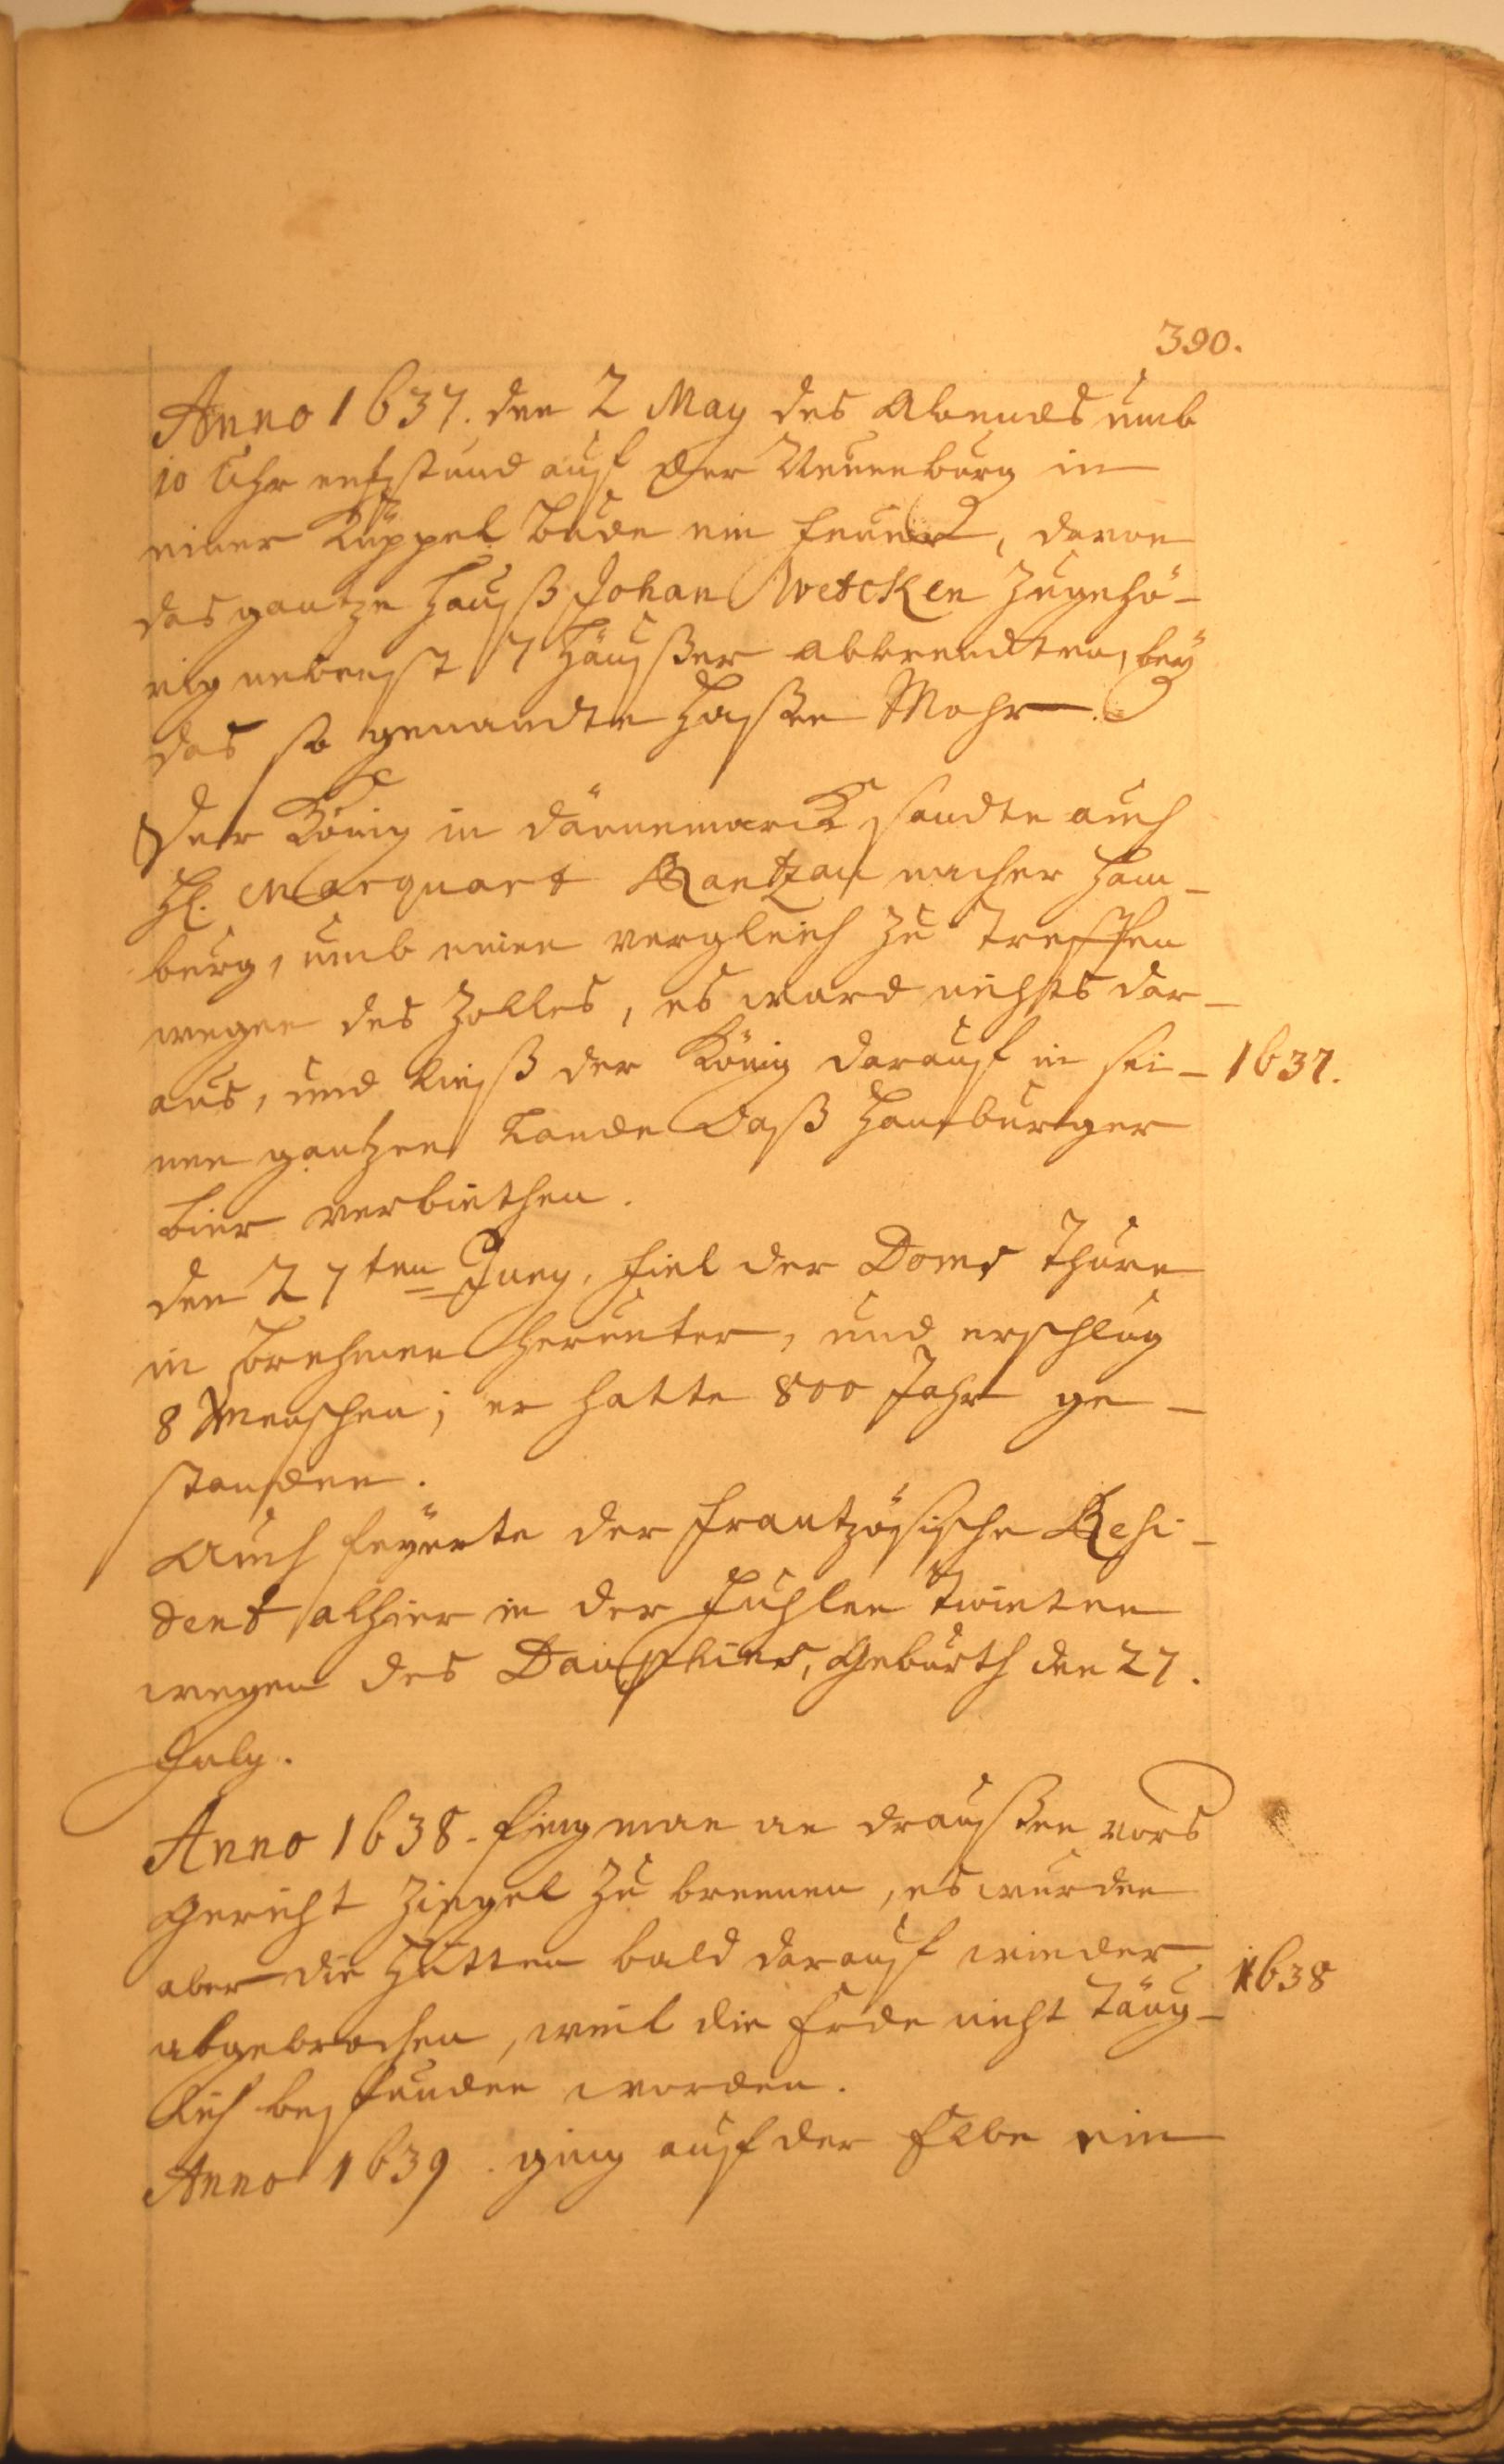 390.
Anno 1637. den 2 May des Abends umb
10 Uhr entstund auf der Neuenburg in
einer Küppel bude ein feuer, davon
das gantze Hauß Johan Wetcken zugehö-
rig nebenst 7 Häußer abbrendten, bey
das so genandte Hassen Mohr.
Der König in dännemarck sandte auch
H. Marquart Rantzau nacher Ham-
burg, umb einen vergleich zu treffen
wegen des Zolles, es ward nichts dar-
aus, und ließ der König darauf in sei-
nen gantzen Lande daß Hamburger
bier verbiethen.
1637.
den 27ten Juny, fiel der Doms Thurn
in Brehmen herunter, und erschlug
8 Menschen; er hatte 800 Jahr ge-
standen.
Auch feyerte der frantzösische Resi-
dent alhier in der Fuhlen Twieten
wegen des Dauphins, Geburth den 27.
July.
Anno 1638. fing man an draußen vors
Gericht Ziegel zu brennen, es wurden
aber die Hütten bald darauf wieder
abgebrochen, weil die Erde nicht täug-
lich befunden worden.
1638
Anno 1639. ging auf der Elbe ein